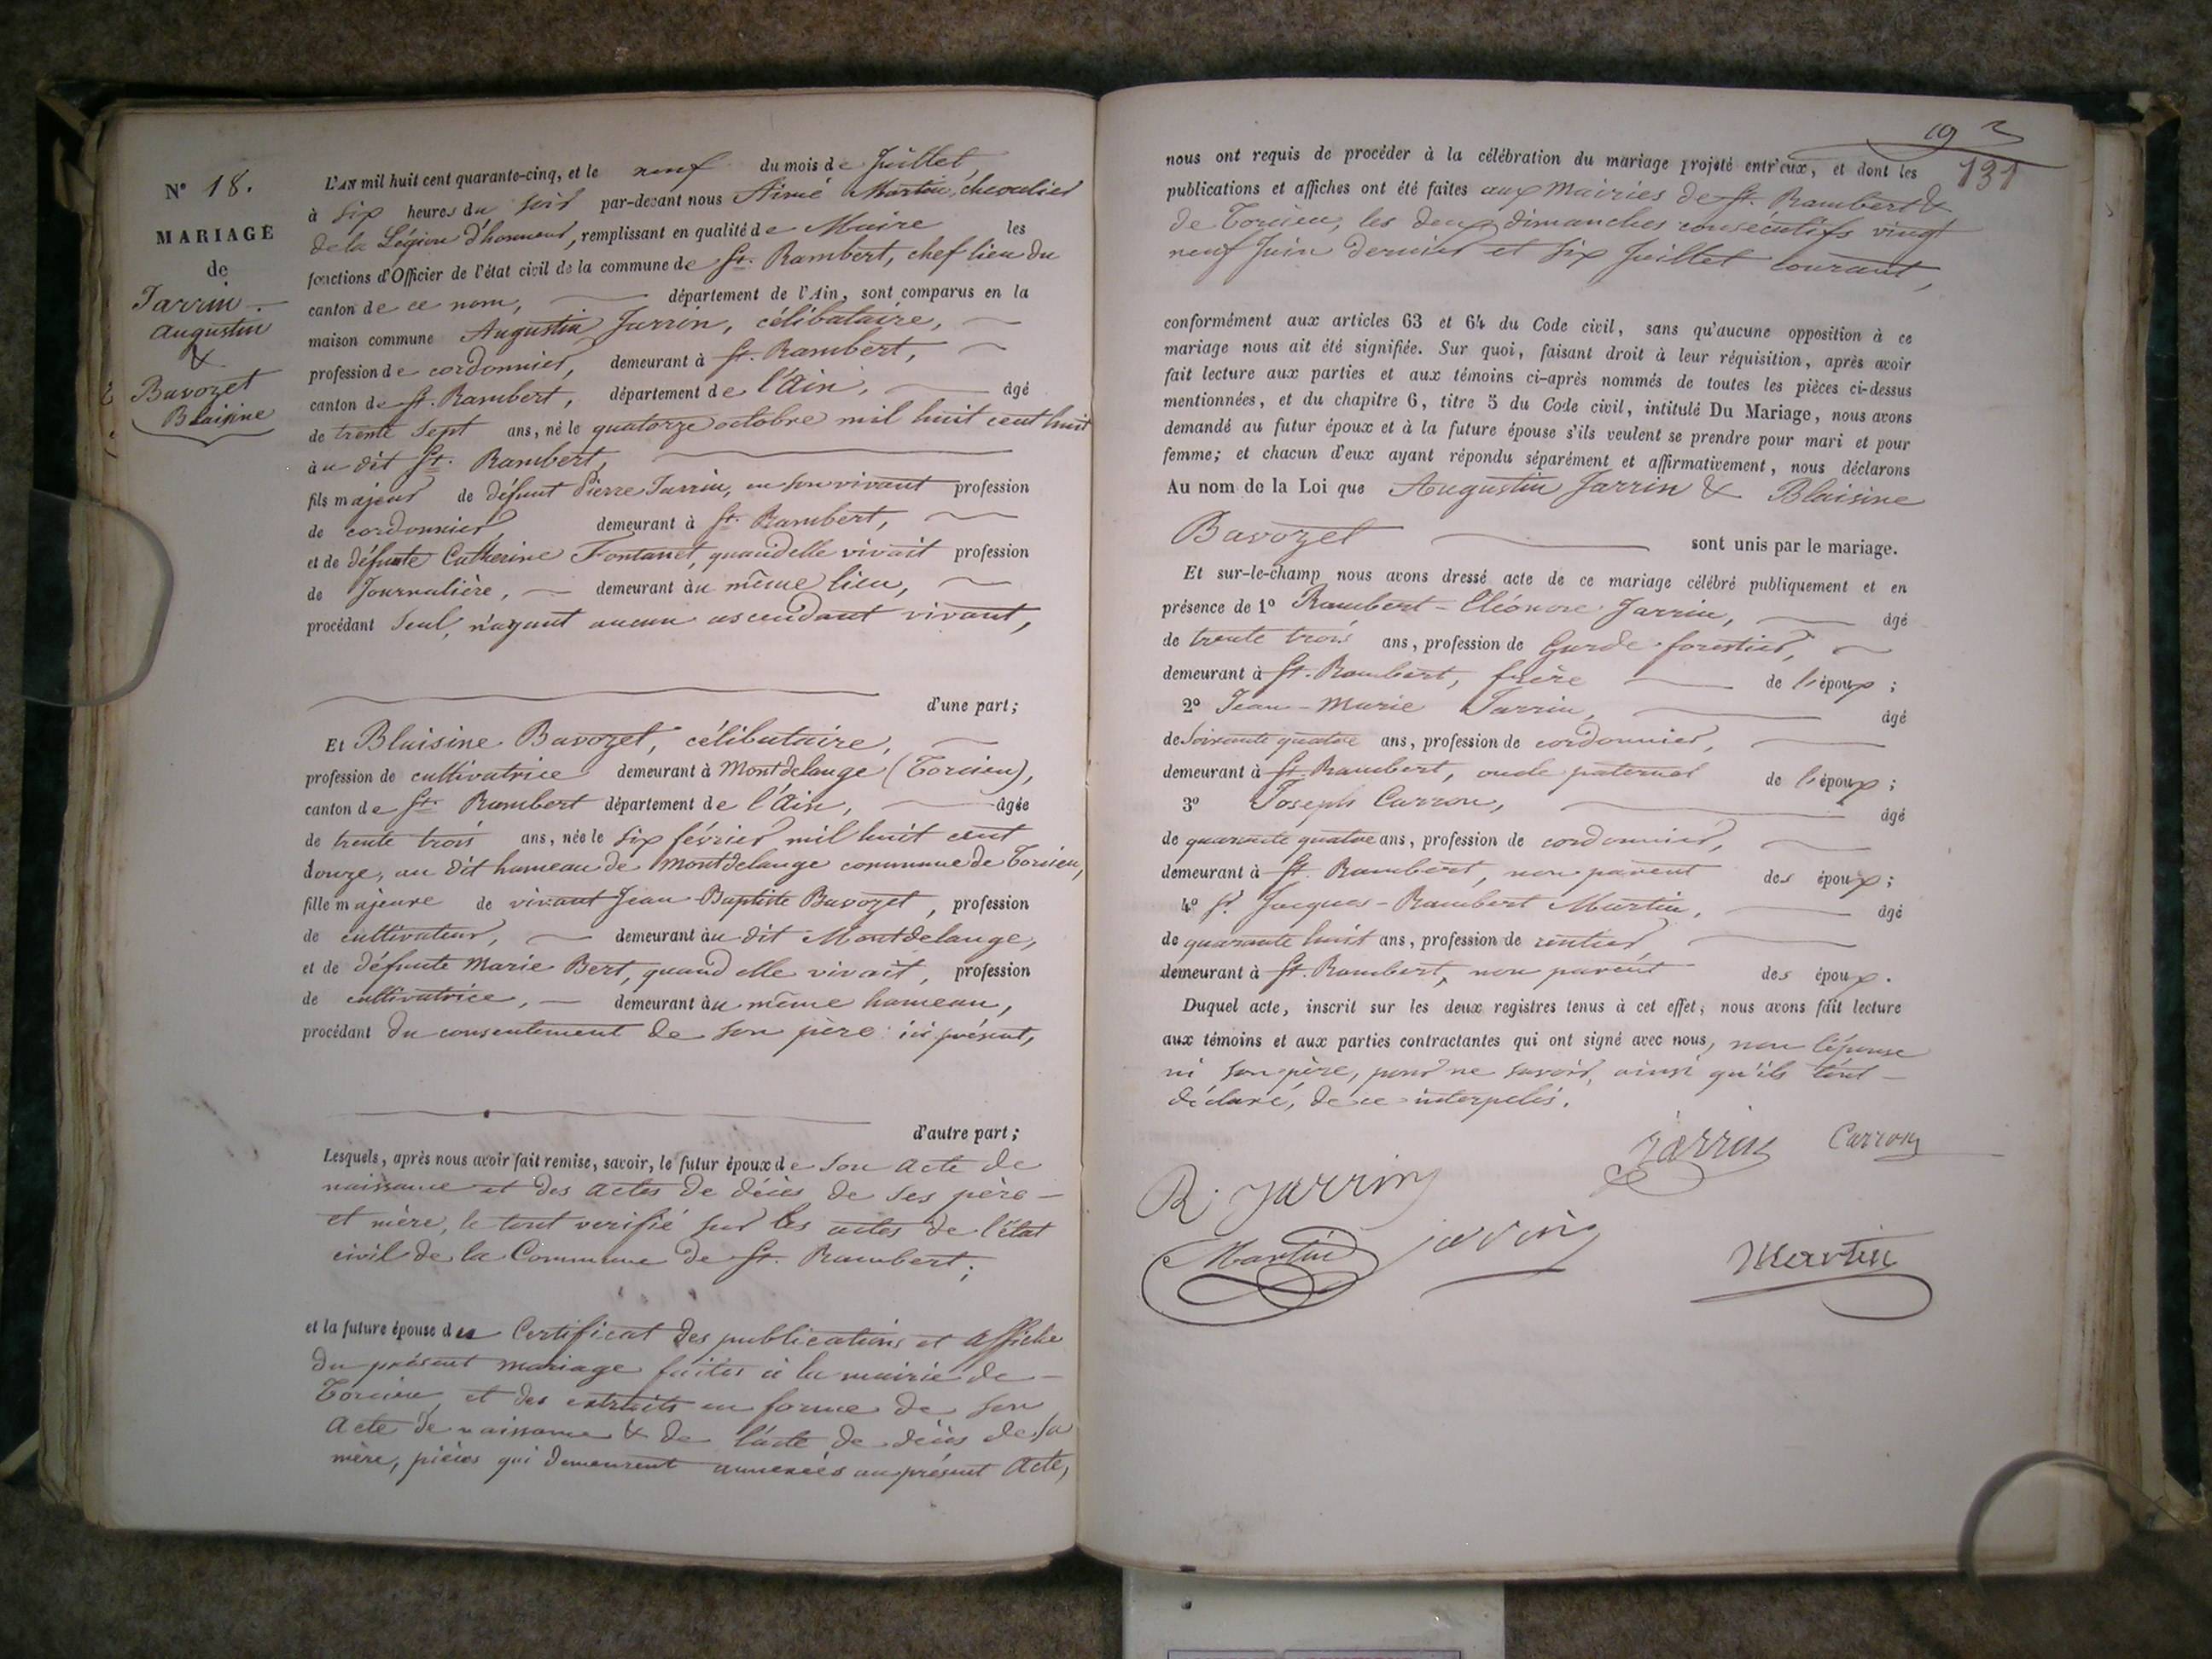 N° 18.
MARIAGE
de
Jarrin
Augustin
&
Bavozet
Blaisine
L'AN mil huit cent quarante-cinq, et le neuf du mois de Juillet,
à six heures du soir par-devant nous Aimé Martin, chevalier
de la Légion d'honneur, remplissant en qualité de Maire les
fonctions d'Officier de l'état civil de la commune de St. Rambert, chef lieu du
canton de ce nom, département de l'Ain, sont comparus en la
maison commune Augustin Jarrin, célibataire,
profession de cordonnier, demeurant à St. Rambert,
canton de St. Rambert, département de l'Ain, âgé
de trente sept ans, né le quatorze octobre mil huit cent huit
àu dit St. Rambert,
fils majeur de défunt Pierre Jarrin, en son vivant profession
de cordonnier demeurant à St. Rambert,
et de défunte Catherine Fontanet, quand elle vivait profession
de Journalière, demeurant àu même lieu,
procédant seul, n'ayant aucun ascendant vivant,
d'une part;
Et Blaisine Bavozet, célibataire,
profession de cultivatrice demeurant à Montdelange (Torcieu),
canton de St. Rambert département de l'Ain, âgée
de trente trois ans, née le six février mil huit cent
douze, au dit hameau de Montdelange commune de Torcieu,
fille majeure de vivant Jean-Baptiste Bavozet, profession
de cultivateur, demeurant àu dit Montdelange,
et de défunte Marie Bert, quand elle vivait, profession
de cultivatrice, demeurant àu même hameau,
procédant du consentement de son père ici présent,
d'autre part;
Lesquels, après nous avoir fait remise, savoir, le futur époux de son acte de
naissance et des actes de décès de ses père
et mère, le tout verifié sur les actes de l'état
civil de la Commune de St. Rambert;
et la future épouse des Certificat des publications et affiche
du présent mariage faites à la mairie de
Torcieu, et des extraits en forme de son
acte de naissance & de l'acte de décès de sa
mère, pièces qui demeurent annexées au présent acte,
192
131
nous ont requis de procéder à la célébration du mariage projeté entr'eux, et dont les
publications et affiches ont été faites aux Mairies de St. Rambert &
de Torcieu, les deux dimanches consécutifs vingt
neuf Juin dernier et six Juillet courant,
conformément aux articles 63 et 64 du Code civil, sans qu'aucune opposition à ce
mariage nous ait été signifiée. Sur quoi, faisant droit à leur réquisition, après avoir
fait lecture aux parties et aux témoins ci-après nommés de toutes les pièces ci-dessus
mentionnées, et du chapitre 6, titre 5 du Code civil, intitulé Du Mariage, nous avons
demandé au futur époux et à la future épouse s'ils veulent se prendre pour mari et pour
femme; et chacun d'eux ayant répondu séparément et affirmativement, nous déclarons
Au nom de la Loi que Augustin Jarrin & Blaisine
Bavozet sont unis par le mariage.
Et sur-le-champ nous avons dressé acte de ce mariage célébré publiquement et en
présence de 1° Rambert-Eléonore Jarrin, âgé
de trente trois ans, profession de Garde forestier,
demeurant à St. Rambert, frère de l'époux;
2° Jean-Marie Jarrin, âgé
de soixante quatre ans, profession de cordonnier,
demeurant à St. Rambert, oncle paternel de l'époux;
3° Joseph Carron, âgé
de quarante quatre ans, profession de cordonnier,
demeurant à St. Rambert, non parent des époux;
4° Sr. Jacques-Rambert Martin, âgé
de quarante huit ans, profession de rentier
demeurant à St. Rambert, non parent des époux.
Duquel acte, inscrit sur les deux registres tenus à cet effet, nous avons fait lecture
aux témoins et aux parties contractantes qui ont signé avec nous, non l'épouse
ni son père, pour ne savoir, ainsi qu'ils l'ont
déclaré, de ce interpelés.
jarrin Carron
R. jarrin
Martin jarrin Martin